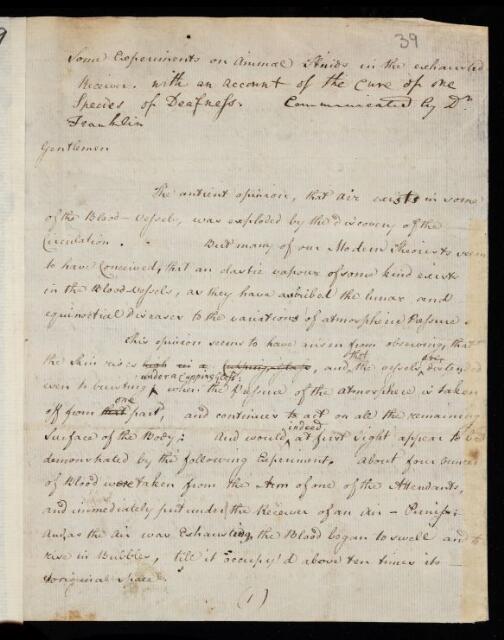 39
Some Experiments on Animal Fluids in the exhausted
Receiver. with an account of the Cure of one
Species of Deafness. Communicated by Dr.
Franklin
Gentlemen
The antient opinion, that air exists in some
of the Blood-Vessels, was exploded by the discovery of the
Circulation. But many of our Modern Theorists seem
to have Conceived, that an elastic vapour of some kind exists
in the Blood-Vessels, as they have ascribed the lunar and
equinoctial diseases to the variations of atmospheric Pressure.
This opinion seems to have arisen from observing, that
the Skin rises high in a Cupping-Glass, and that the vessels are distended
under a Cupping Glass
even to bursting when the Pressure of the Atmosphere is taken
off from that one part, and continues to act on all the remaining
Surface of the Body: And would indeed at first Sight appear to be
demonstrated by the following Experiment. About four ounces
of Blood were taken from the Arm of one of the Attendants,
and immediately put under the Receiver of an Air-Pump:
And, as the Air was Exhausting, the Blood began to swell and to
rise in Bubbles, till it occupy'd above ten times its
original space
(1)